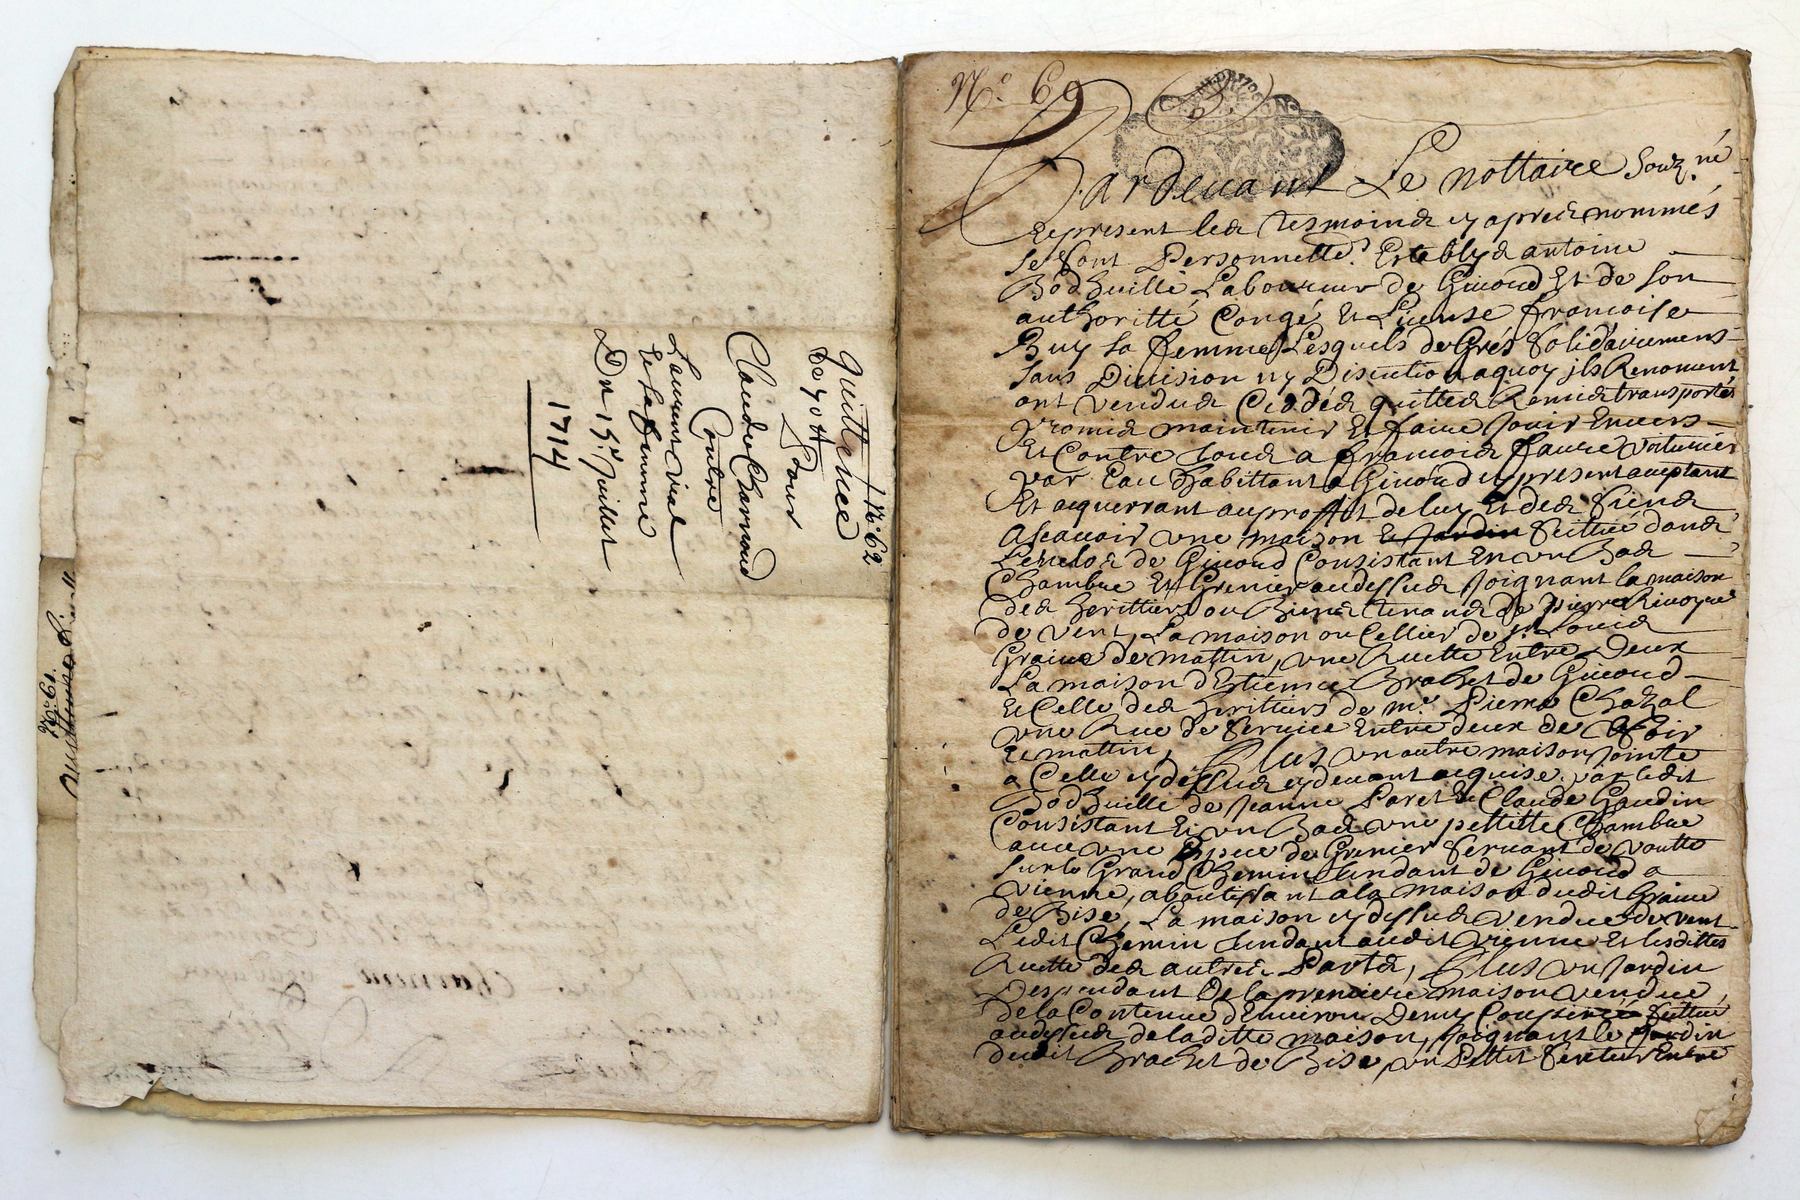 No. 62
Quittence
de 70 tt
Pour
Claude Charnoud
Contre
Laurent vial
et la femme
Du 15e Juillet
1714
No. 61.
No. 60
Pardeuant Le nottaire souz.né
et present les tesmoins cy apres nommés
se sont Personnelle.t Establys antoine
Bodhuille Laboureur de Giuord Et de son
authoritté Congé et License francoise
Buy sa femme, Lesquels de Grés solidairement
sans Diuision ny Discution aquoy ils Renoncent
ont vendus Ceddés quittes Remis transportés
promis maintenir Et faire Jouir Enuers
Et Contre tous a francois faure voiturier
par Eau habittant a Giuord cy present acceptant
Et acquerrant au proffit de luy Et des siens
Ascauoir vne maison et Jardin scittué dans
L'enclos de Giuord Consistant En vn Bas
Chambre Et Grenier au dessus Joignant la maison
des heritiers ou Biens tenans de pierre
de vent, La maison ou Cellier de sr. Louis
Graine de mattin, vne Ruette Entre Deux
La maison d'Estienne Brachet de Giuord
Et Celle des heritiers de me. Pierre Chazal
vne Rue de seruice Entre deux de soir
et mattin, Plus vn autre maison Jointe
a Celle cy dessus cy deuant acquise par ledit
Bodhuille de Jeanne Paret & Claude Gaudin
Consistant En vn Bas vne pettitte Chambre
auec vne Espece de Grenier seruant de voutte
sur le Grand Chemin tendant de Giuord a
vienne, aboutissant a la maison dudit Graine
de Bise, La maison cy dessus vendue de vent
Ledit Chemin tendant audit vienne Et lesdittes
Ruette des autres Parts, Plus vn Jardin
Despendant de la premiere maison vendue,
de la Contenue d'Enuiron Demy Couperée scittué
au dessus de laditte maison, Joignant le Jardin
dudit Brachet de Bise, vn Pettit sentier Entre